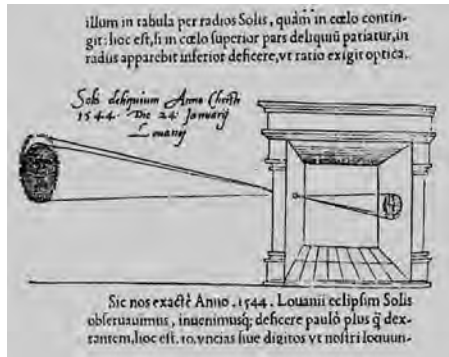 illum in tabula per radios Solis, quàm in cœlo contin-
git: hoc est, si in cœlo superior pars deliquiũ patiatur, in
radiis apparebit inferior deficere, vt ratio exigit optica.
Solis deliquium Anno Christi
1544. Die 24. Januarij
Louanij
Sic nos exactè Anno .1544. Louanii eclipsim Solis
obseruauimus, inuenimusq; deficere paulò plus q̃ dex-
tantem, hoc est, 10. vncias siue digitos vt nostri loquun-